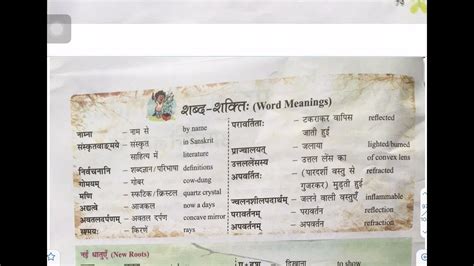 शब्द-शक्तिः (Word Meanings)
नाम्ना – नाम से by name
संस्कृतवाङ्मये – संस्कृत in Sanskrit
साहित्य में literature
निर्वचनानि – शब्दज्ञान/परिभाषा definitions
गोमयम् – गोबर cow-dung
मणि – स्फटिक/क्रिस्टल quartz crystal
अद्यत्वे – आजकल now a days
अवतलदर्पणम् – अवतल दर्पण concave mirror
– किरणें rays
परावर्तिताः – टकराकर वापिस reflected
जाती हुई
प्राज्वालयत् – जलाया lighted/burned
उत्तललेंसस्य – उत्तल लेंस का of convex lens
अपवर्तिताः – (पारदर्शी वस्तु से refracted
गुज़रकर) मुड़ती हुई
ज्वलनशीलपदार्थम् – जलने वाली वस्तुएँ inflammable
परावर्तनम् – परावर्तन reflection
अपवर्तनम् – अपवर्तन refraction
नई धातुएँ (New Roots)
दिखाना to show